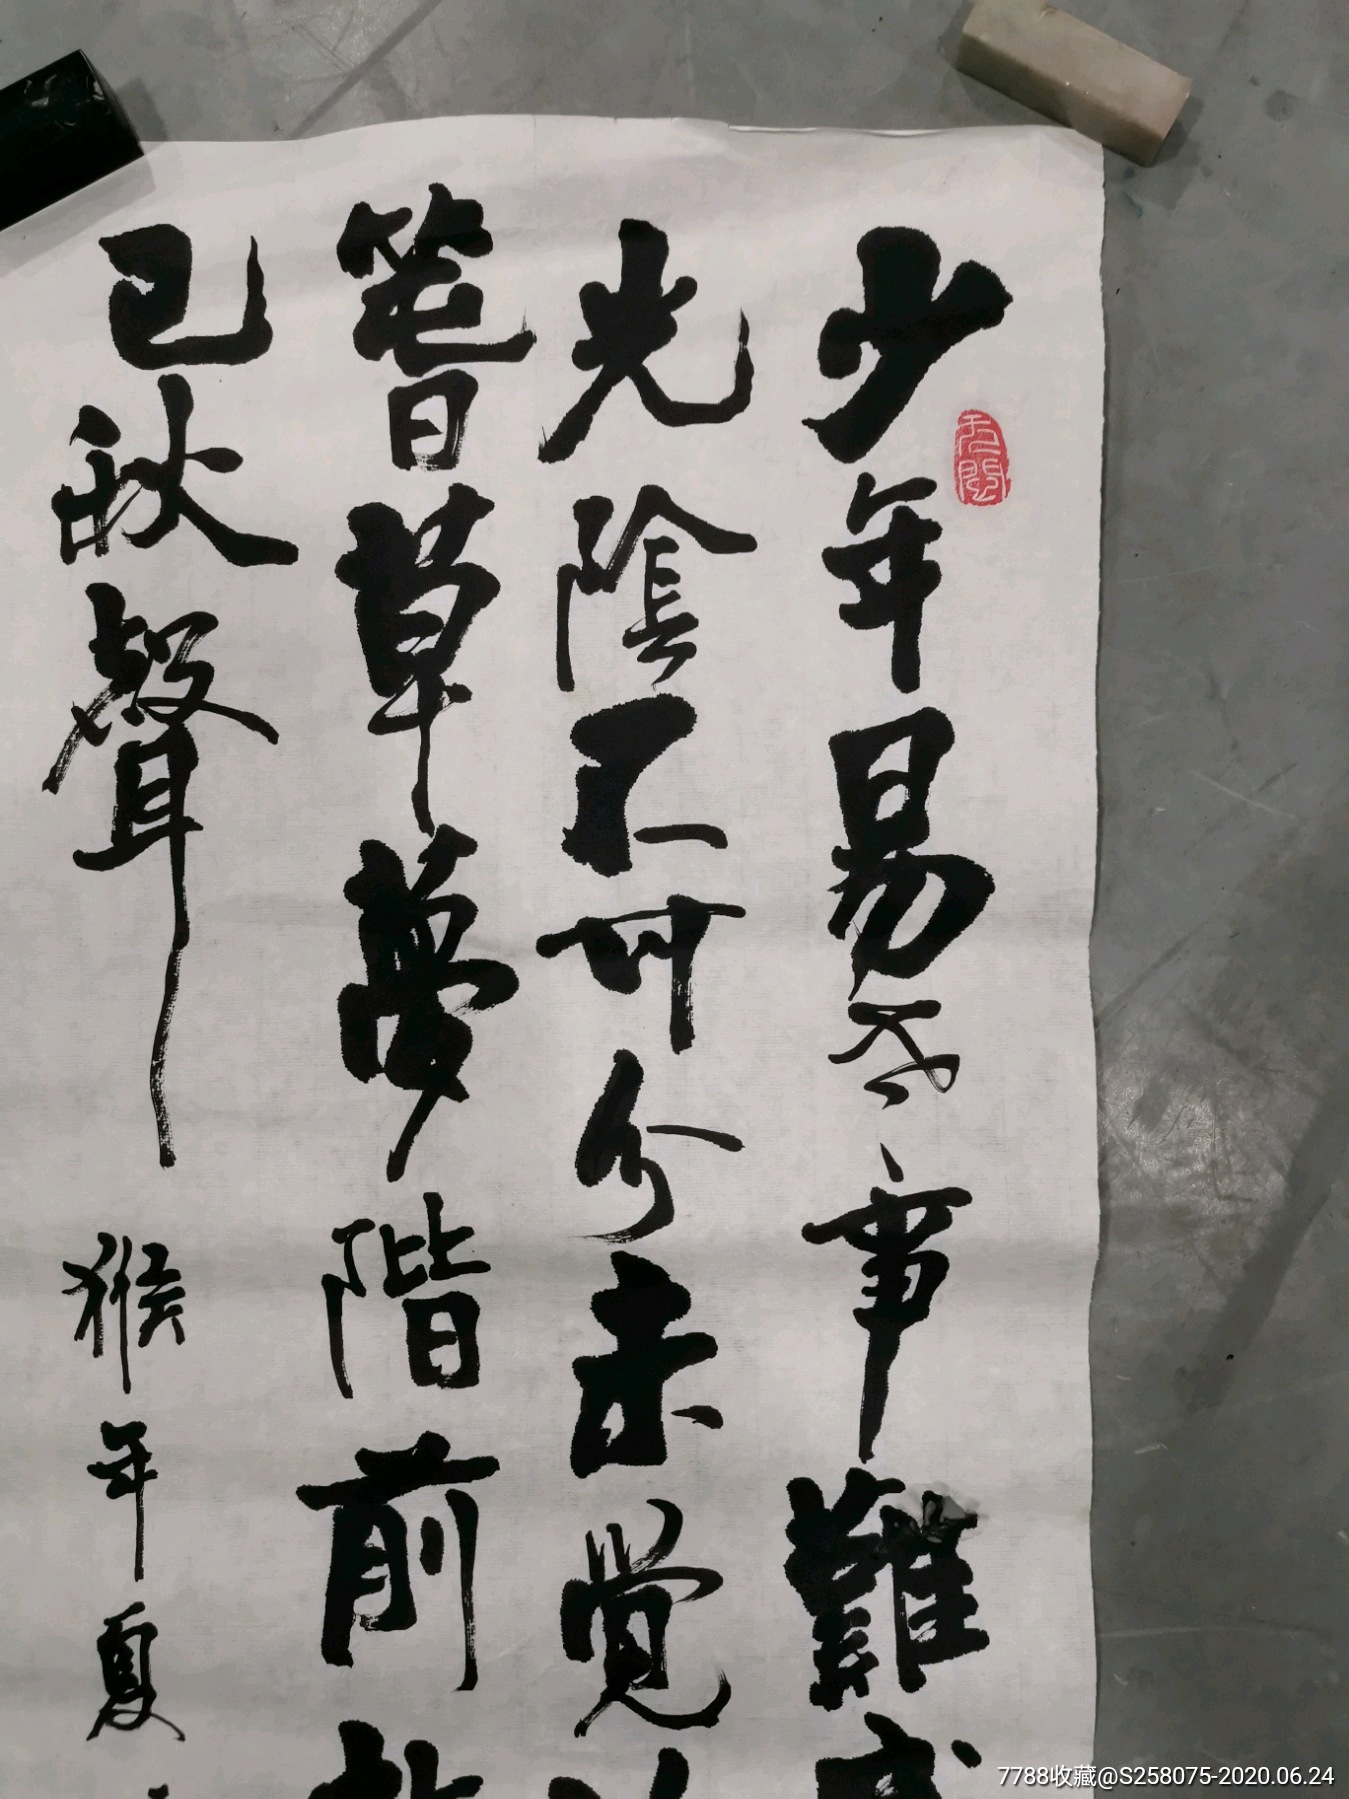 少年易老事難成
光陰不可未覺
萅草夢階前
已秋聲 猴年夏
7788收藏@S258075-2020.06.24